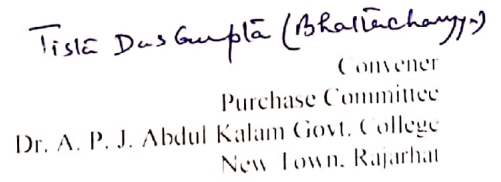 Tista DasGupta (Bhattacharyya)
Convener
Purchase Committee
Dr. A. P. J. Abdul Kalam Govt. College
New Town, Rajarhat